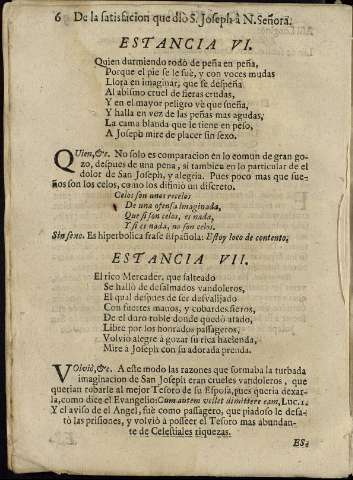 6 De la satisfacion que diò S. Joseph à N. Señora.
ESTANCIA VI.
Quien durmiendo rodò de peña en peña,
Porque el pie se le fuè, y con voces mudas
Llora en imaginar, que se despeña
Al abismo cruel de fieras crudas,
Y en el mayor peligro vè que sueña,
Y halla en vez de las peñas mas agudas,
La cama blanda que le tiene en peso,
A Joseph mire de placer sin sexo.
QUien, &c. No solo es comparacion en lo comun de gran go-
zo, despues de una pena, si tambien en lo particular de el
dolor de San Joseph, y alegria. Pues poco mas que sue-
ños son los celos, como los difiniò un discreto.
Celos son unos recelos
De una ofensa imaginada,
Que si son celos, es nada,
Y si es nada, no son celos.
Sin sexo. Es hiperbolica frase Española: Estoy loco de contento.
ESTANCIA VII.
El rico Mercader, que salteado
Se hallò de desalmados vandoleros,
El qual despues de ser desvalijado
Con fuertes manos, y cobardes fieros,
De el duro roble donde quedò atado,
Libre por los honrados passageros,
Volviò alegre à gozar su rica hacienda,
Mire à Joseph con su adorada prenda.
VOlviò, &c. A este modo las razones que formaba la turbada
imaginacion de San Joseph eran crueles vandoleros, que
querian robarle al mejor Tesoro de su Esposa, pues queria dexar-
la, como dice el Evangelio: Cum autem vellet dimittere eam, Luc. 1.
Y el aviso de el Angel, fuè como passagero, que piadoso le desa-
tò las prisiones, y volviò à posseer el Tesoro mas abundan-
te de Celestiales riquezas.